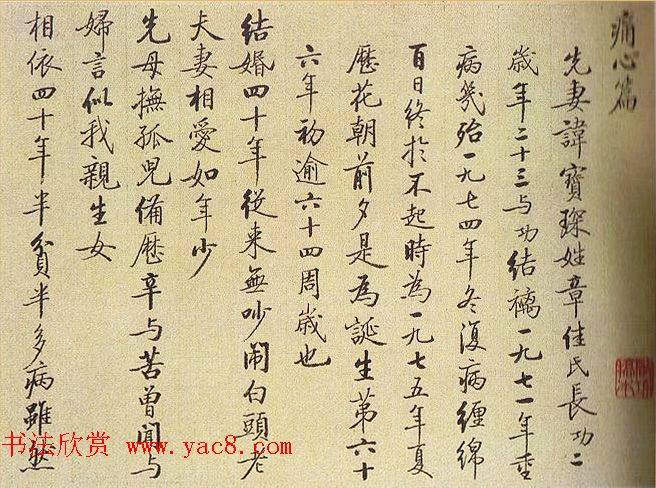 痛心篇
先妻諱寶琛姓章佳氏長功二
歲年二十三与功結褵一九七一年重
病幾殆一九七四年冬復病纏綿
百日終於不起時為一九七五年夏
歷花朝前夕是為誕生第六十
六年初逾六十四周歲也
結婚四十年從來無吵鬧白頭老
夫妻相愛如年少
先母撫孤兒備歷辛与苦曾聞与
婦言似我親生女
相依四十年半貧半多病雖然
书法欣赏 www.yac8.com